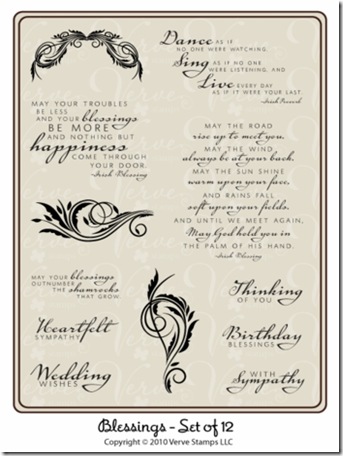 Dance AS IF
NO ONE WERE WATCHING,
Sing AS IF NO ONE
WERE LISTENING, AND
Live EVERY DAY
AS IF IT WERE YOUR LAST.
-Irish Proverb
MAY YOUR TROUBLES
BE LESS
AND YOUR blessings
BE MORE
AND NOTHING BUT
happiness
COME THROUGH
YOUR DOOR.
-Irish Blessing
MAY THE ROAD
rise up to meet you.
MAY THE WIND
always be at your back.
MAY THE SUN SHINE
warm upon your face,
AND RAINS FALL
soft upon your fields.
AND UNTIL WE MEET AGAIN,
May God hold you in
THE PALM OF HIS HAND.
-Irish Blessing
MAY YOUR blessings
OUTNUMBER
THE shamrocks
THAT GROW.
Thinking
OF YOU
Heartfelt
SYMPATHY
Birthday
BLESSINGS
Wedding
WISHES
WITH
Sympathy
Blessings - Set of 12
Copyright © 2010 Verve Stamps LLC